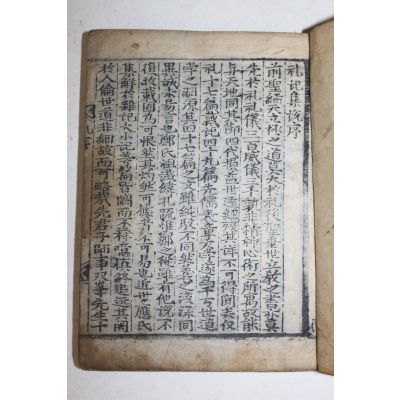 礼記集說序
前聖継天立极之道莫大於礼後聖垂世立敎之書亦莫
先於礼礼儀三百威儀三千孰非精神心術之所寓故能
与天地同其節四代損益世遠經殘其詳不可得聞矣仪
礼十七篇戴記四十九篇先儒表章庸學遂为千万世道
学之淵源其四十七篇之文雖純駁不同然義之浅深同
異誠未易言也鄭氏祖讖緯孔疏惟鄭之從雖有他說不
復收載固为可恨然其灼然可據者不可易也近世應氏
集解於雜記大小記等篇皆闕而不釋噫慎終追遠其関
於人倫世道非細故而可略哉先君子師事双峯先生十